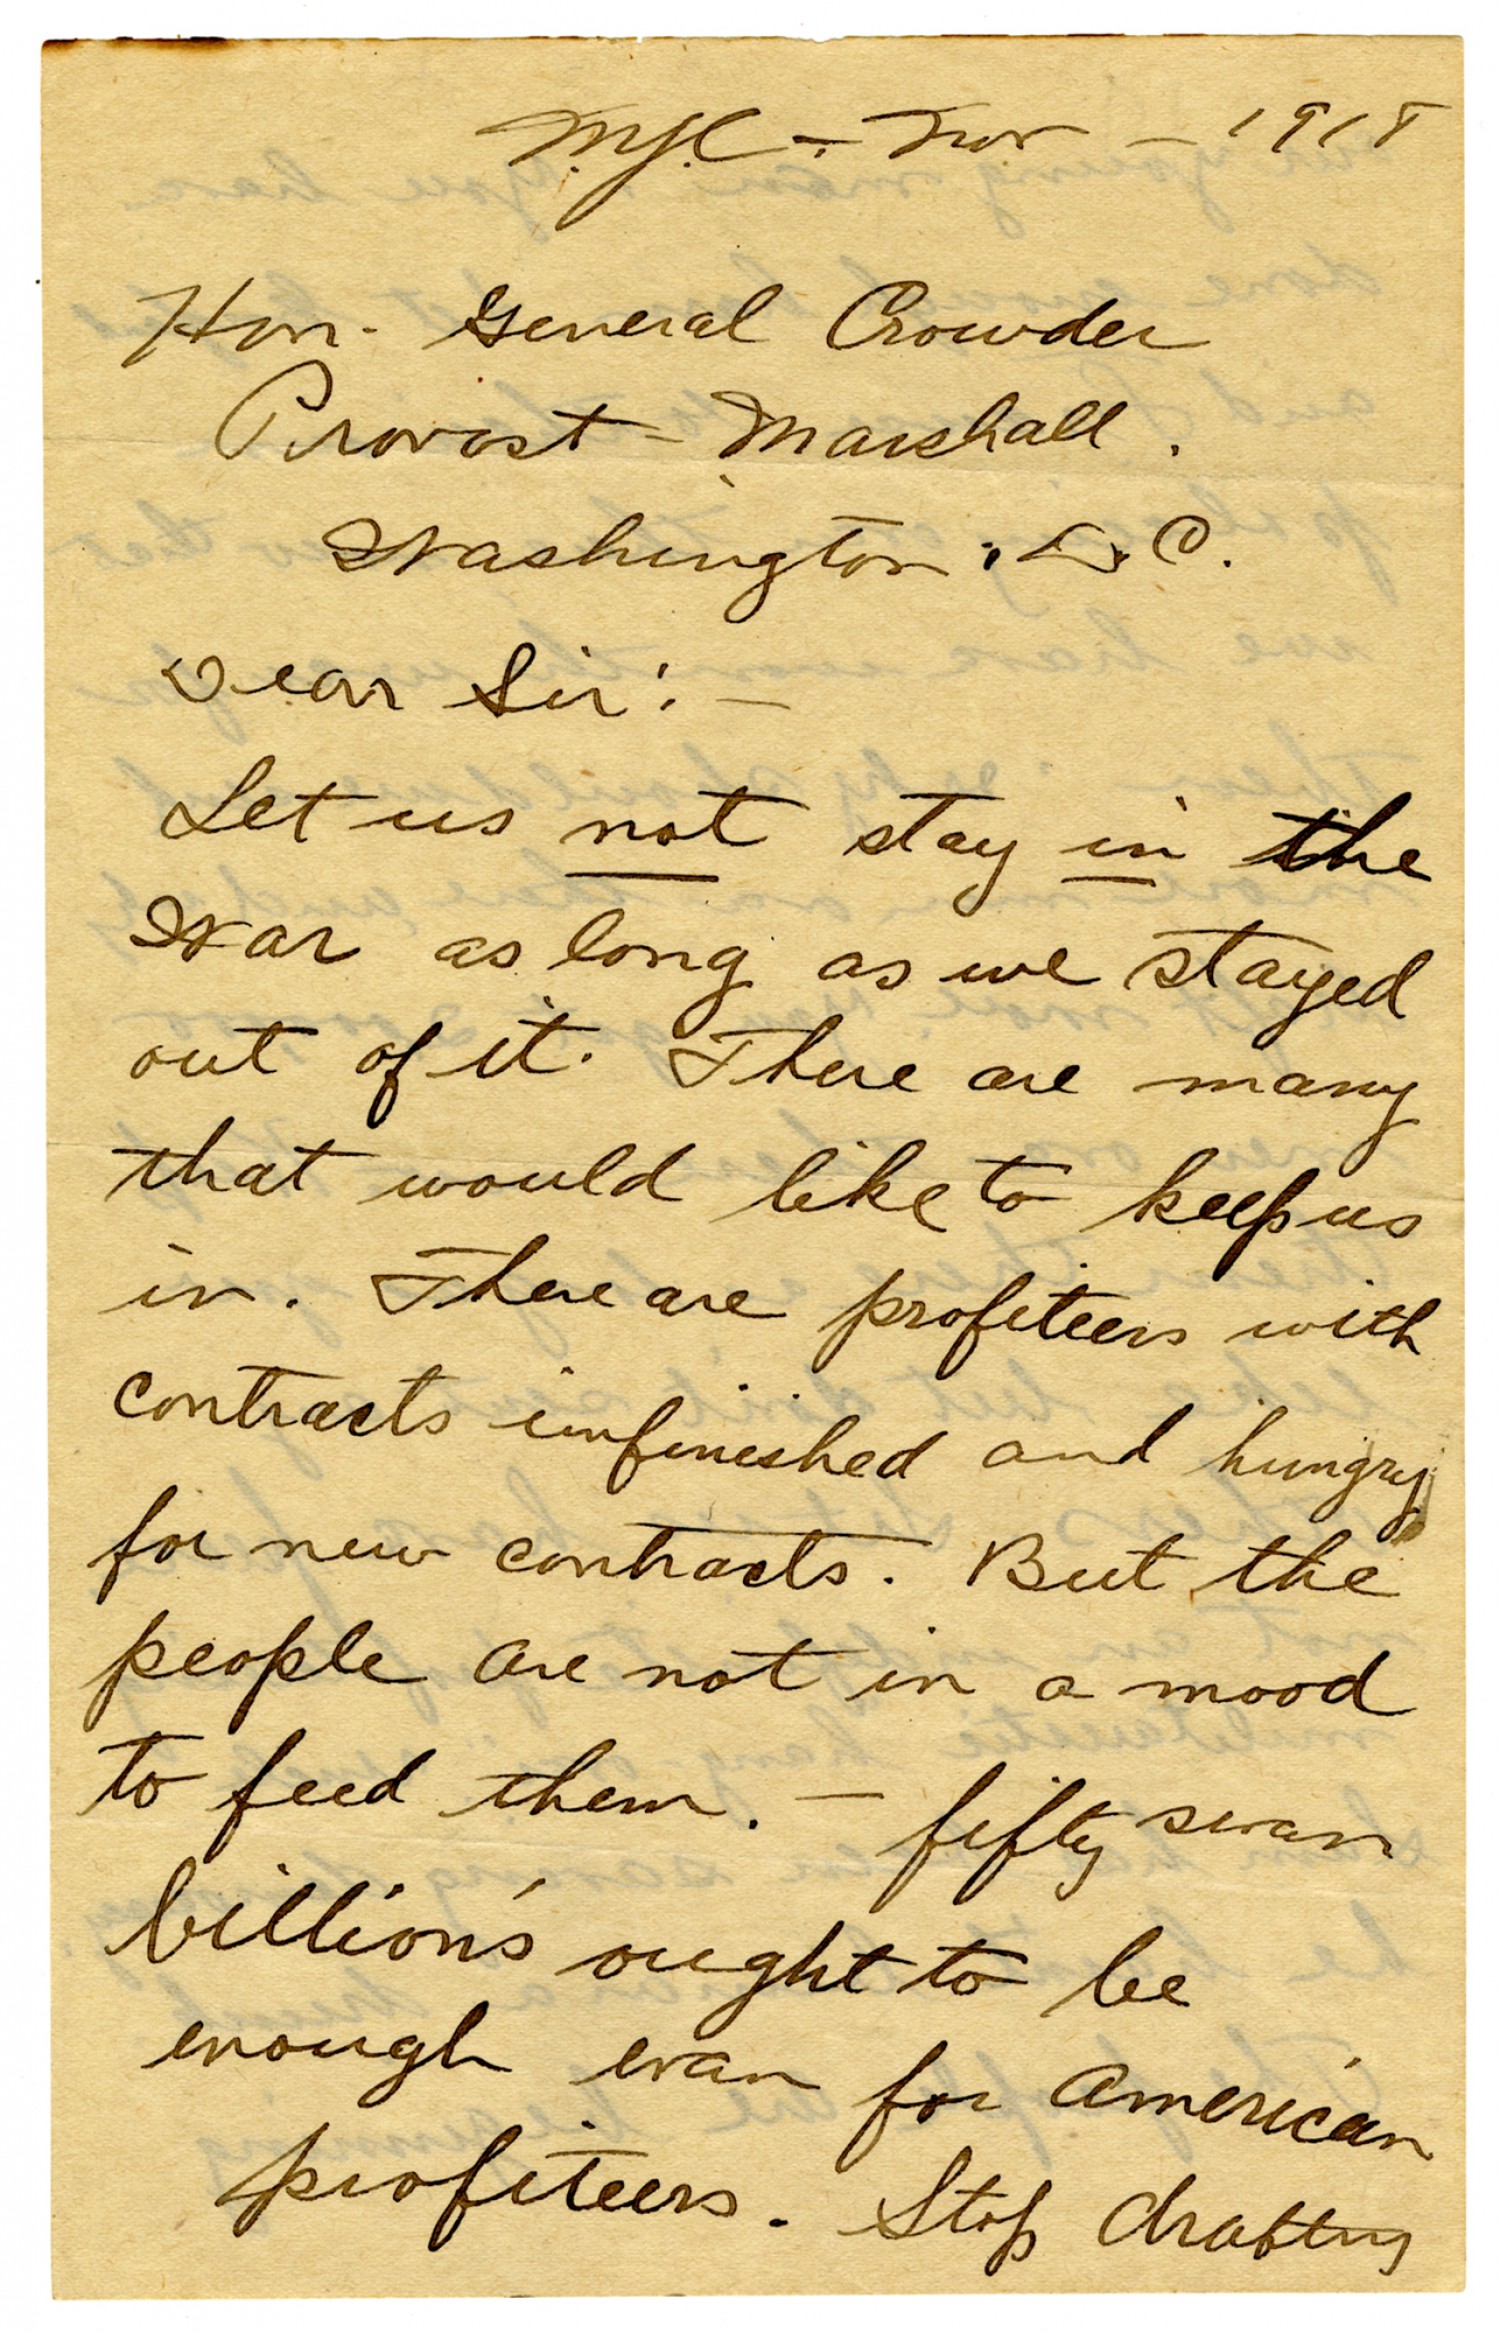 N.Y.C - Nov - 1918
Hon. General Crowder
Provost-Marshall.
Washington, D.C.
Dear Sir:-
Let us not stay in the
War as long as we stayed
out of it. There are many
that would like to keep us
in. There are profiteers with
contracts unfinished and hungry
for new contracts. But the
people are not in a mood
to feed them. - fifty
billion's ought to be
enough evan for American
profiteers. Stop drafting